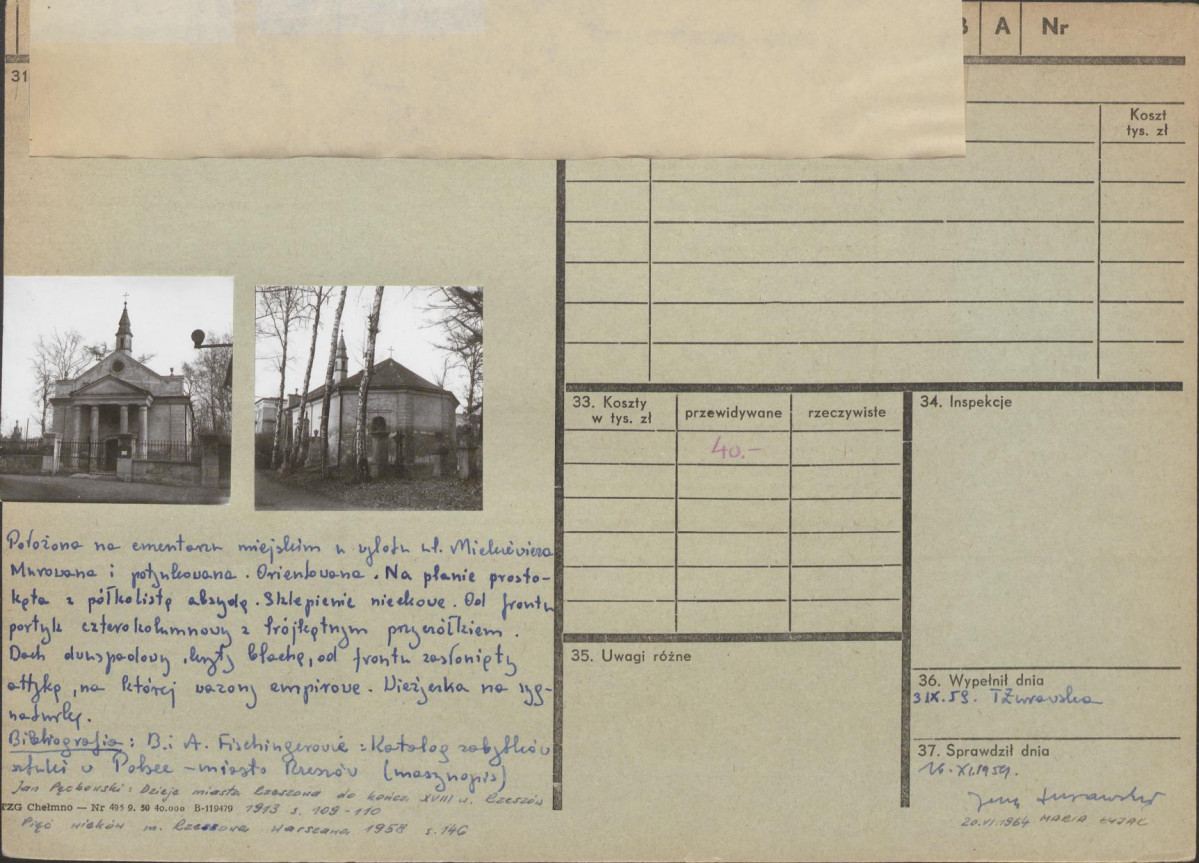 A Nr
31
Koszt
tys. zł
33. Koszty
w tys. zł
przewidywane
rzeczywiste
40.-
34. Inspekcje
35. Uwagi różne
36. Wypełnił dnia
3 IX.59. TŻurawska
37. Sprawdził dnia
16.XI.1959.
20.VI.1964 MARIA
Położona na cmentarzu miejskim u wylotu ul. Mickiewicza
Murowana i potynkowana. Orientowana. Na planie prosto-
kąta z półkolistą absydą. Sklepienie nieckowe. Od frontu
portyk czterokolumnowy z trójkątnym przyczółkiem.
Dach dwuspadowy, kryty blachą, od frontu zasłonięty
attyką, na której wazony empirowe. Wieżyczka na syg-
naturkę.
Bibliografia: B. i A. Fischingerowie: Katalog zabytków
sztuki w Polsce - miasto Rzeszów (maszynopis)
Jan Pęckowski: Dzieje miasta Rzeszowa do końca XVIII w. Rzeszów
PZG Chełmno — Nr 495 9. 50 40.000 B-119479
1913 s. 109-110
Pięć wieków m. Rzeszowa Warszawa 1958 s. 146